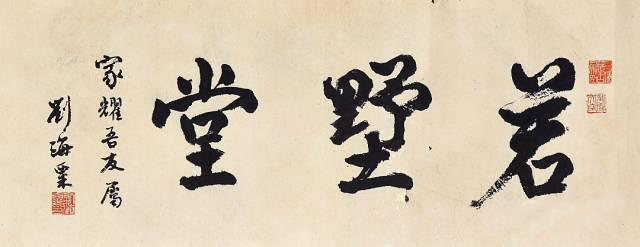 若墅堂
家耀吾友屬
劉海粟